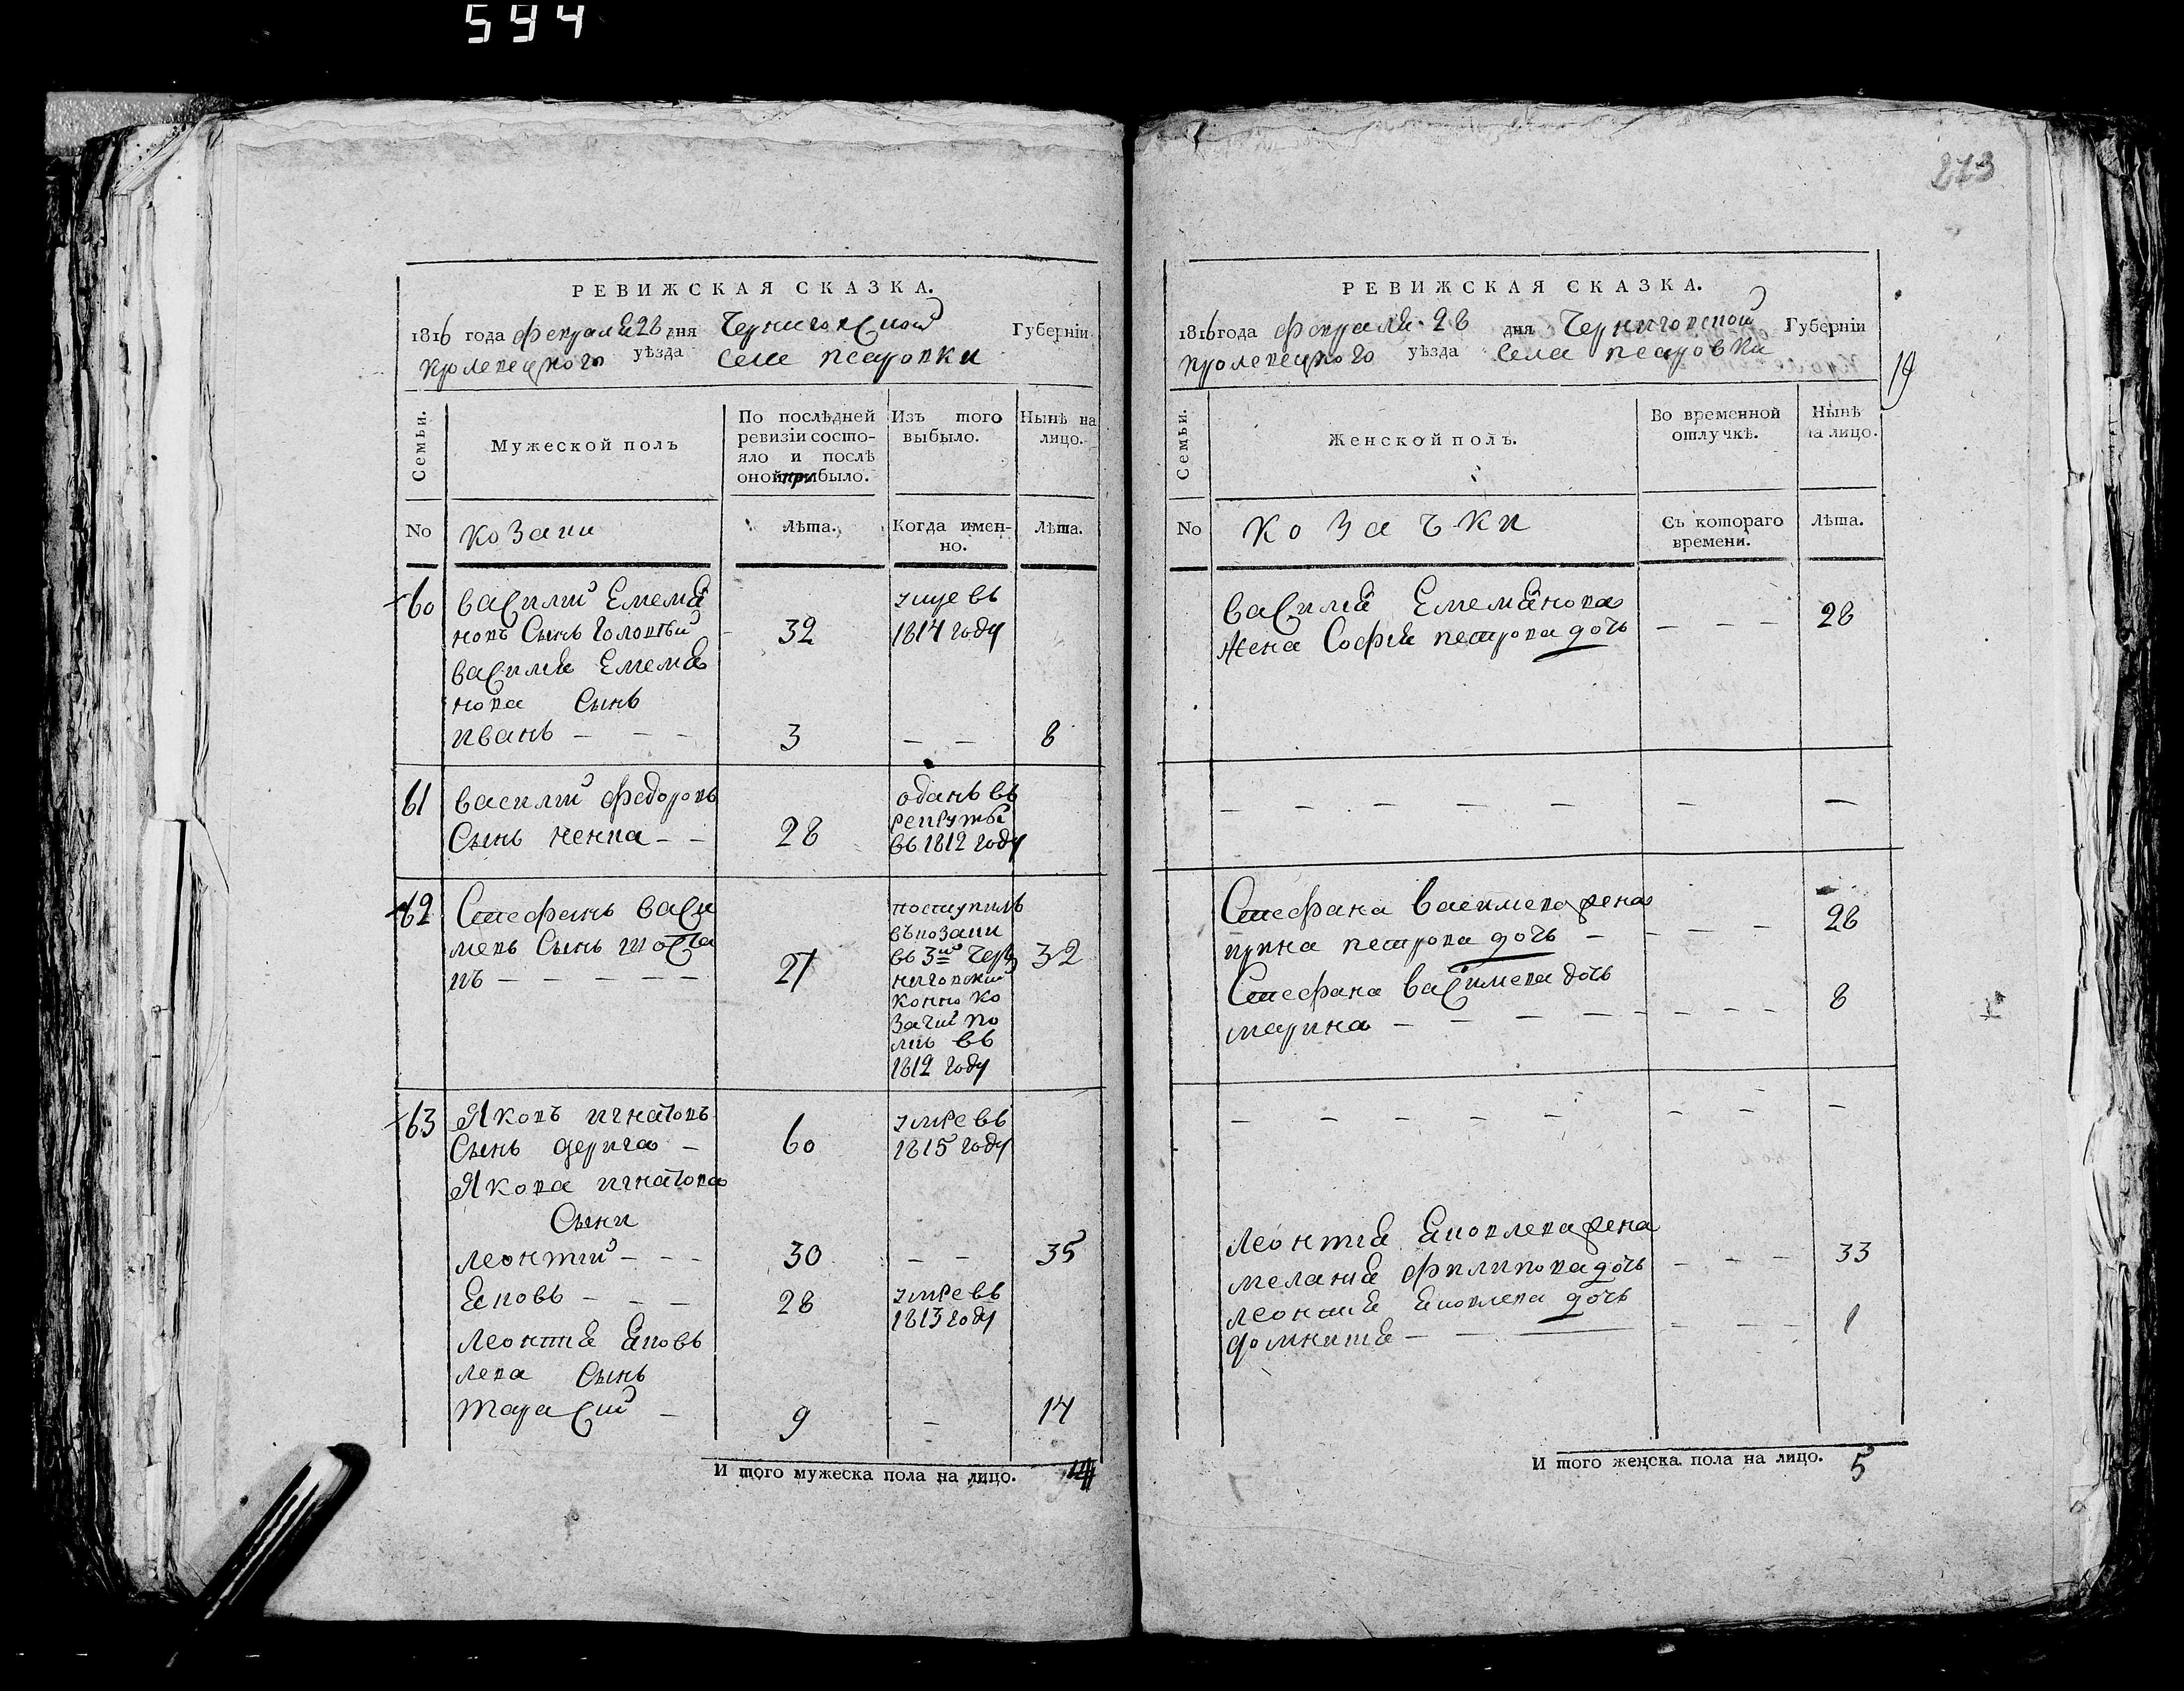 594
273
РЕВИЖСКАЯ СКАЗКА.
1816 года февраля 28 дня Черниговской Губерніи.
кролевецкого уѣзда села петровки
Семьи.
Мужеской полъ
По послѣдней
ревизіи состо-
яло и послѣ
оной прибыло.
Изъ того
выбыло.
Нынѣ на
лицо.
No
козаки
лѣта.
Когда имен-
но.
лѣта.
60
василий Емелья
новъ Сынъ Головный
32
умре въ
1814 году
василия Емелья
нова Сынъ
иванъ — — —
3
— —
8
61
василий федоровъ
Сынъ ненка — —
28
одань въ
рекруты
въ 1812 году
62
Стефанъ васи
левъ Сынъ шоста
къ — — — — —
27
поступилъ
въ козаки
въ 3й Чер
ниговский
конно ко
зачий по
лкъ въ
1812 году
32
63
Яковъ игнатовъ
Сынъ дерига —
60
умре въ
1815 году
Якова игнатова
Сыни
леонтий — — —
30
— —
35
Яковъ — — —
28
умре въ
1813 году
леонтия Яковъ
лева Сынъ
тарасий —
9
—
14
И того мужеска пола на лицо. 4
РЕВИЖСКАЯ СКАЗКА.
1816 года февраля 28 дня Черниговской Губерніи
кролевецкого уѣзда села петровки
19
Семьи.
Женской полъ.
Во временной
отлучкѣ.
Нынѣ
на лицо.
No
козачки
Съ котораго
времени.
лѣта.
василия Емельянова
жена София петрова дочь
— — —
28
— — — — — — —
Стефана василева жена
ирина петрова дочь —
— — —
28
Стефана василева дочь
марина — — — — — — —
8
— — — — — — — —
леонтия Яковлева жена
мелания филипова дочь
— — —
33
леонтия Яковлева дочь
домникия — — — — — —
1
И того женска пола на лицо. 5